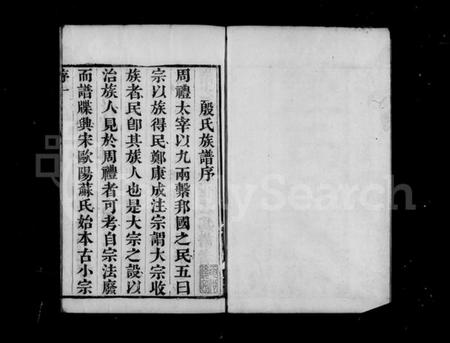 殷氏族譜序
周禮太宰以九兩繫邦國之民五曰
宗以族得民鄭康成注宗謂大宗收
族者民卽其族人也是大宗之設以
治族人見於周禮者可考自宗法廢
而譜牒興宋歐陽蘇氏始本古小宗
序一
MySearch